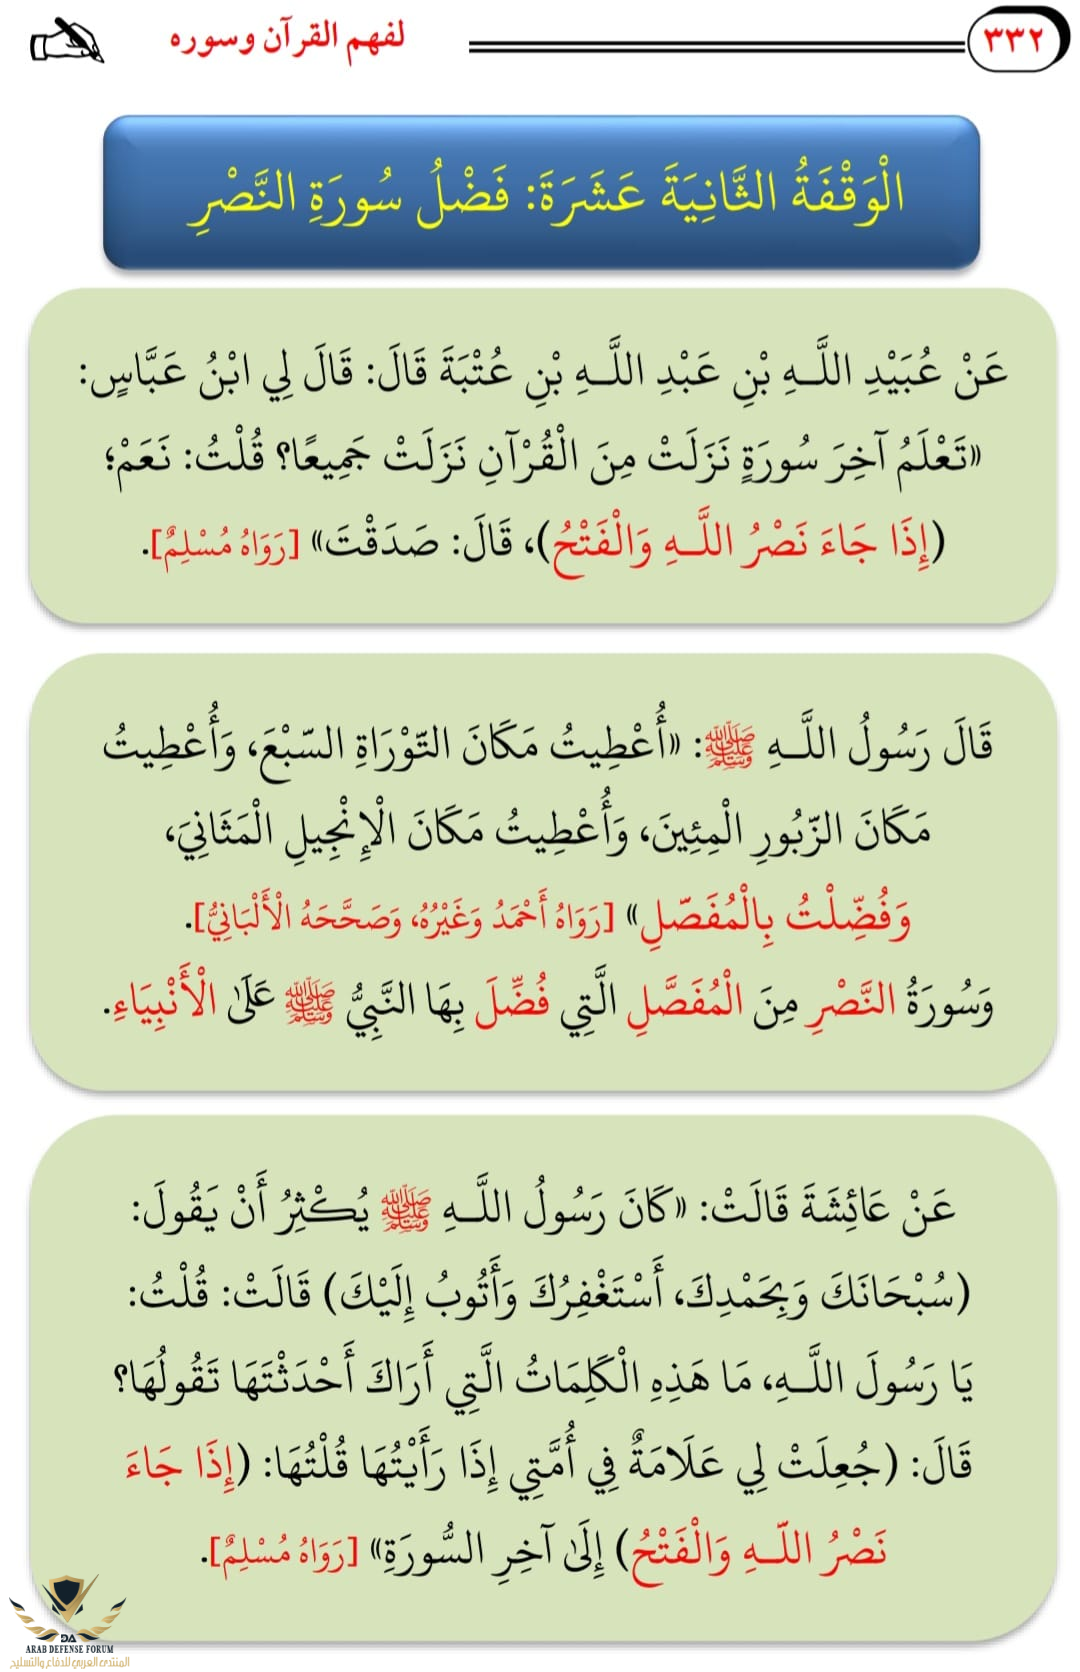 ٣٣٢
لفهم القرآن وسوره
الْوَقْفَةُ الثَّانِيَةَ عَشَرَةَ: فَضْلُ سُورَةِ النَّصْرِ
عَنْ عُبَيْدِ اللَّهِ بْنِ عَبْدِ اللَّهِ بْنِ عُتْبَةَ قَالَ: قَالَ لِي ابْنُ عَبَّاسٍ:
«تَعْلَمُ آخِرَ سُورَةٍ نَزَلَتْ مِنَ الْقُرْآنِ نَزَلَتْ جَمِيعًا؟ قُلْتُ: نَعَمْ؛
(إِذَا جَاءَ نَصْرُ اللَّهِ وَالْفَتْحُ)، قَالَ: صَدَقْتَ» [رَوَاهُ مُسْلِمٌ].
قَالَ رَسُولُ اللَّهِ ﷺ: «أُعْطِيتُ مَكَانَ التّوْرَاةِ السّبْعَ، وَأُعْطِيتُ
مَكَانَ الزّبُورِ الْمِئِينَ، وَأُعْطِيتُ مَكَانَ الْإِنْجِيلِ الْمَثَانِيَ،
وَفُضِّلْتُ بِالْمُفَصّلِ» [رَوَاهُ أَحْمَدُ وَغَيْرُهُ، وَصَحَّحَهُ الْأَلْبَانِيُّ].
وَسُورَةُ النَّصْرِ مِنَ الْمُفَصَّلِ الَّتِي فُضِّلَ بِهَا النَّبِيُّ ﷺ عَلَى الْأَنْبِيَاءِ.
عَنْ عَائِشَةَ قَالَتْ: «كَانَ رَسُولُ اللَّهِ ﷺ يُكْثِرُ أَنْ يَقُولَ:
(سُبْحَانَكَ وَبِحَمْدِكَ، أَسْتَغْفِرُكَ وَأَتُوبُ إِلَيْكَ) قَالَتْ: قُلْتُ:
يَا رَسُولَ اللَّهِ، مَا هَذِهِ الْكَلِمَاتُ الَّتِي أَرَاكَ أَحْدَثْتَهَا تَقُولُهَا؟
قَالَ: (جُعِلَتْ لِي عَلَامَةٌ فِي أُمَّتِي إِذَا رَأَيْتُهَا قُلْتُهَا: (إِذَا جَاءَ
نَصْرُ اللّهِ وَالْفَتْحُ) إِلَى آخِرِ السُّورَةِ» [رَوَاهُ مُسْلِمٌ].
DA
ARAB DEFENSE FORUM
المنتدى العربي للدفاع والتسليح